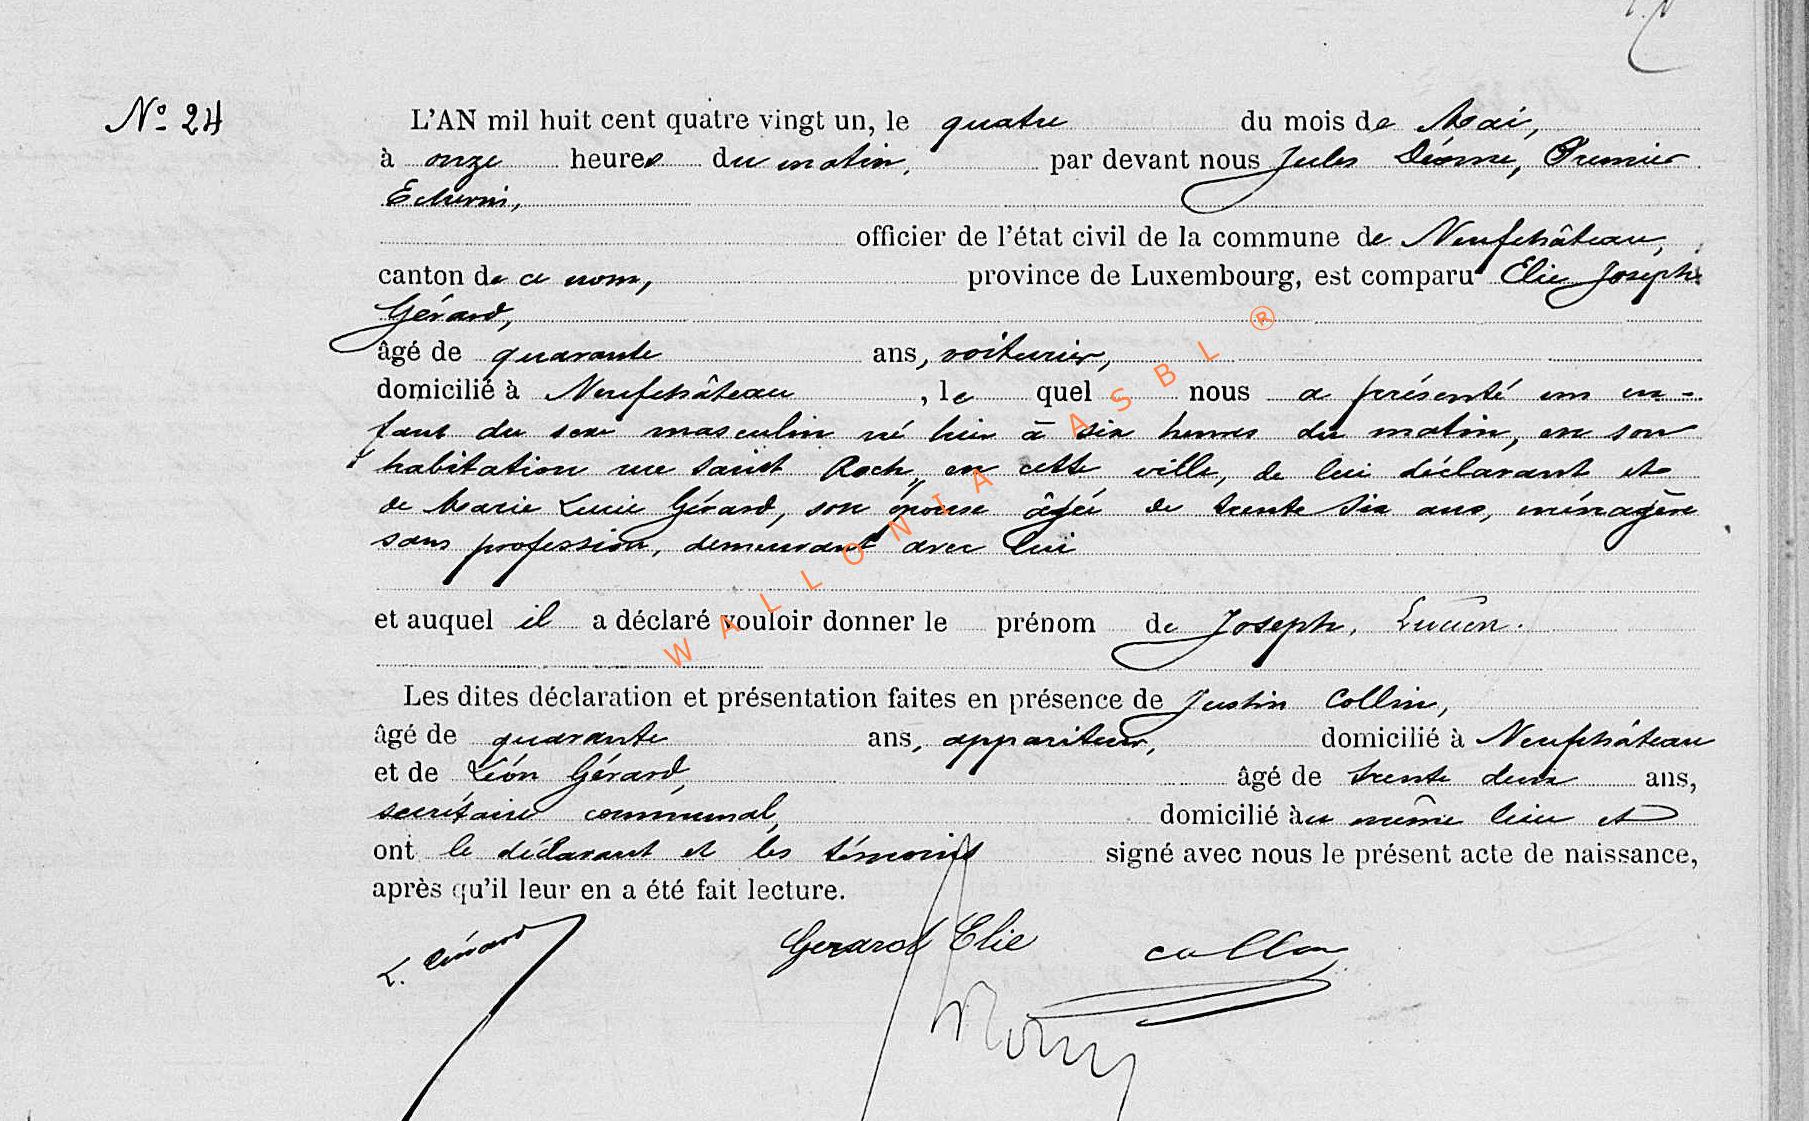 N° 24
L'AN mil huit cent quatre vingt un, le quatre du mois de Mai,
à onze heures du matin, par devant nous Jules Premier
Echevin,
officier de l'état civil de la commune de Neufchâteau,
canton de ce nom, province de Luxembourg, est comparu Elie Joseph
Gérard,
âgé de quarante ans, voiturier,
domicilié à Neufchâteau, le quel nous a présenté un en-
fant du sexe masculin né hier à six heures du matin, en son
habitation rue Saint Roch, en cette ville, de lui déclarant et
de Marie Lucie Gérard, son épouse âgée de trente six ans, ménagère
sans profession, demeurant avec lui
et auquel il a déclaré vouloir donner le prénom de Joseph, Lucien.
Les dites déclaration et présentation faites en présence de Justin Collin,
âgé de quarante ans, appariteur, domicilié à Neufchâteau
et de Léon Gérard, âgé de trente deux ans,
secrétaire communal, domicilié au même lieu et
ont le déclarant et les témoins signé avec nous le présent acte de naissance,
après qu'il leur en a été fait lecture.
L. Gérard Gerard Elie Collin
WALLONIA ASBL ®